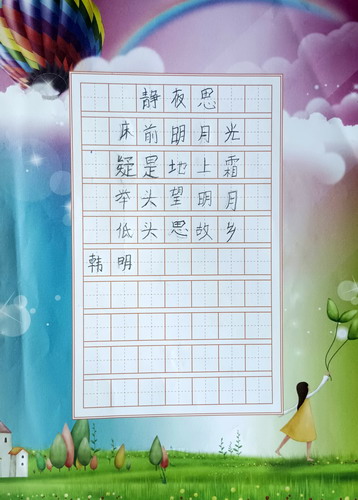 静夜思
床前明月光
疑是地上霜
举头望明月
低头思故乡
韩明